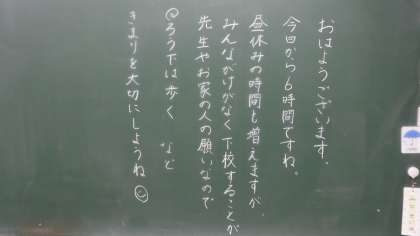 おはようございます。
今日から6時間ですね。
昼休みの時間も増えますが、
みんなかけがなく下校することが
先生やお家の人の願いなので
@ろう下は歩く など
きまりを大切にしようね